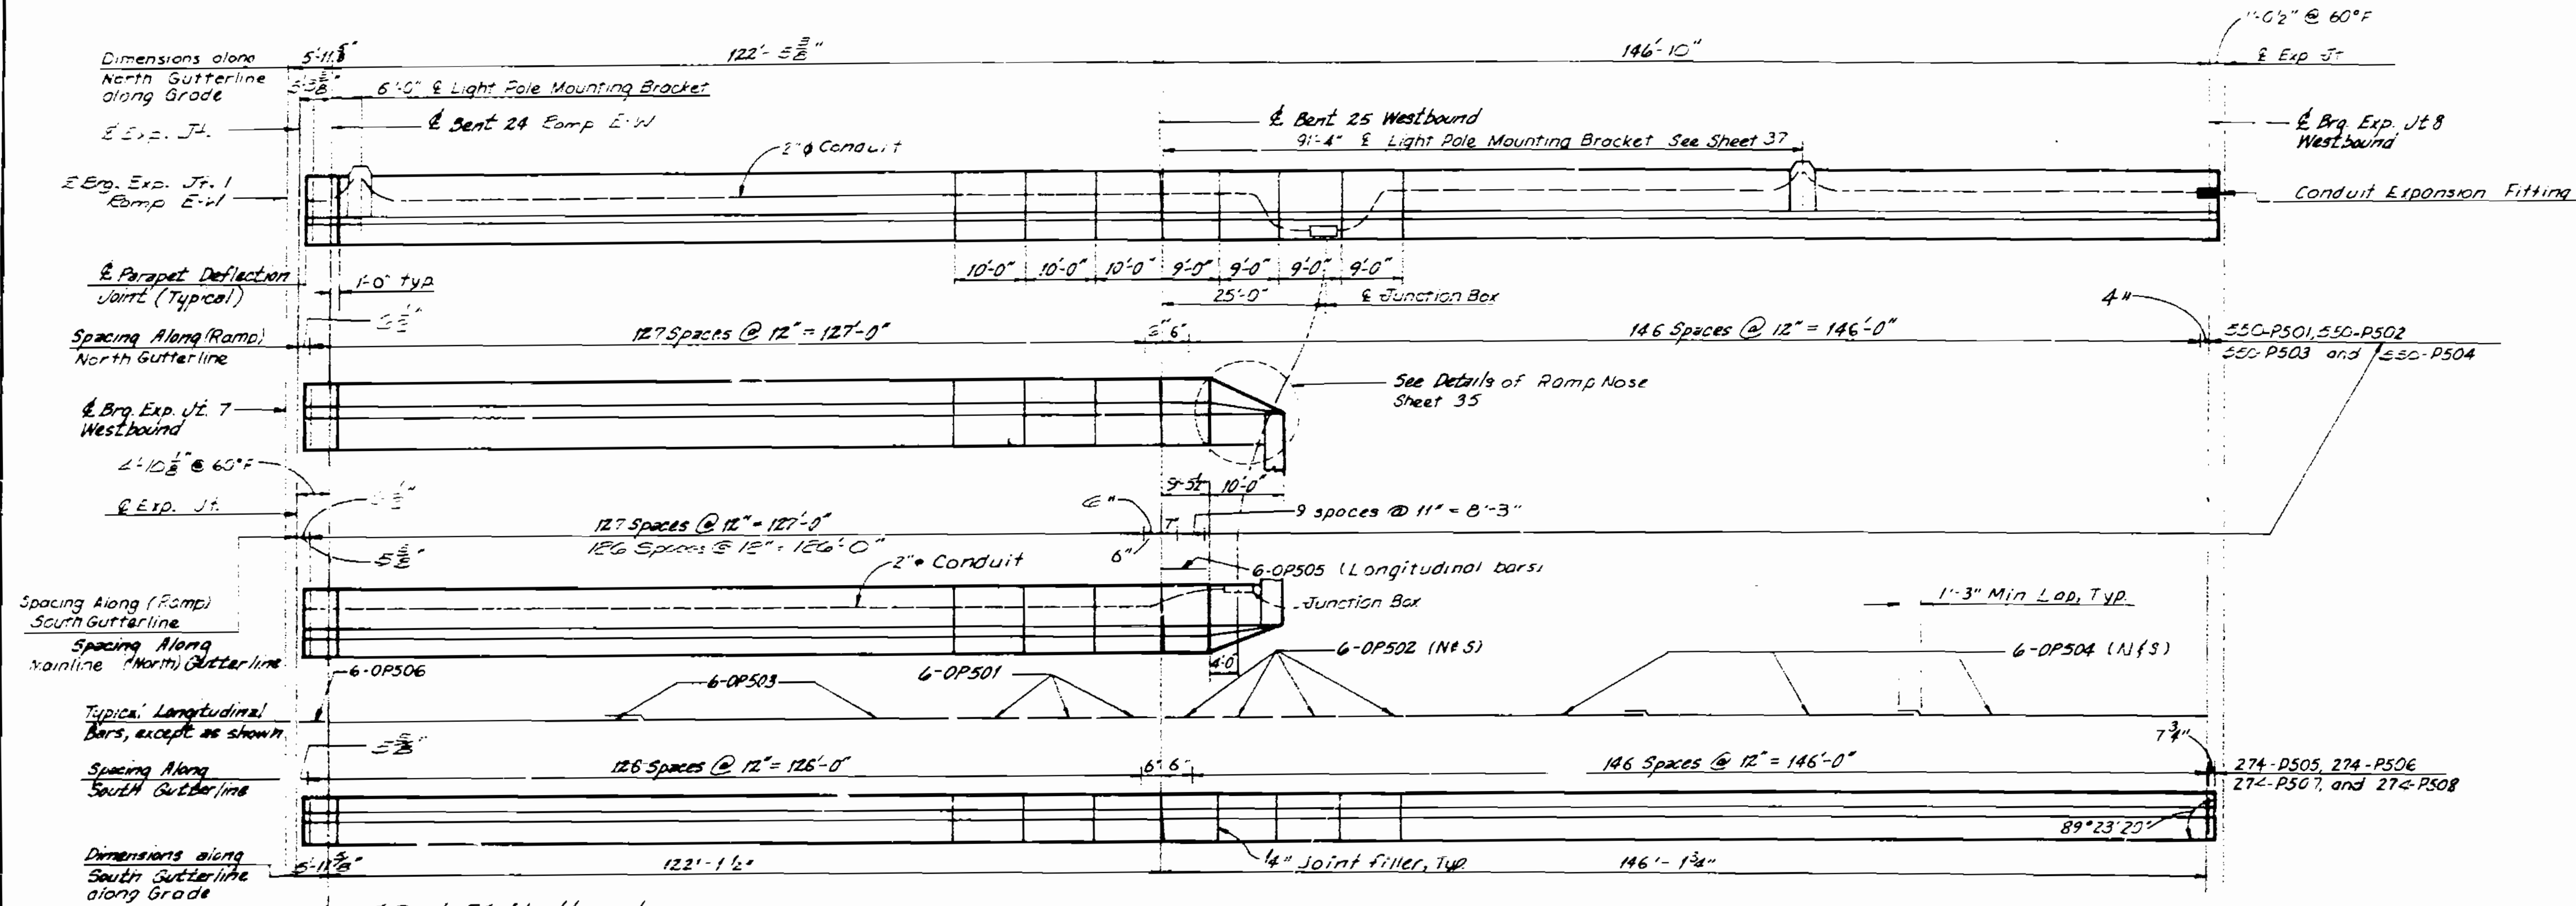 Dimensions along
North Gutterline
along Grade
5'-11 5/8"
122'- 5 3/8"
146'-10"
1'-0 1/2" @ 60°F
℄ Exp Jt
6'-0" ℄ Light Pole Mounting Bracket
℄ Exp. Jt.
℄ Bent 24 Ramp E-W
℄ Bent 25 Westbound
91'-4" ℄ Light Pole Mounting Bracket See Sheet 37
℄ Brg. Exp. Jt 8
Westbound
2"φ Conduit
℄ Brg. Exp. Jt. 1
Ramp E-W
Conduit Expansion Fitting
℄ Parapet Deflection
Joint (Typical)
1'-0" typ.
10'-0" 10'-0" 10'-0" 9'-0" 9'-0" 9'-0" 9'-0"
25'-0" ℄ Junction Box
4"
Spacing Along (Ramp)
North Gutterline
127 Spaces @ 12" = 127'-0"
6"
146 Spaces @ 12" = 146'-0"
550-P501, 550-P502
550-P503 and 550-P504
℄ Brg. Exp. Jt. 7
Westbound
See Details of Ramp Nose
Sheet 35
4'-10 1/8" @ 60°F
9'-5 1/2" 10'-0"
℄ Exp. Jt.
6"
7"
9 spaces @ 11" = 8'-3"
127 Spaces @ 12" = 127'-0"
126 Spaces @ 12" = 126'-0"
5 5/8"
6"
2"φ Conduit
6-OP505 (Longitudinal bars)
Junction Box
Spacing Along (Ramp)
South Gutterline
Spacing Along
Mainline (North) Gutterline
1'-3" Min Lap, Typ.
4'-0"
6-OP506
6-OP503
6-OP501
6-OP502 (N&S)
6-OP504 (N&S)
Typical Longitudinal
Bars, except as shown
7 3/4"
Spacing Along
South Gutterline
126 Spaces @ 12" = 126'-0"
6" 6"
146 Spaces @ 12" = 146'-0"
274-P505, 274-P506
274-P507, and 274-P508
89°23'20"
Dimensions along
South Gutterline
along Grade
5'-11 5/8"
122'-1 1/2"
1/4" Joint filler, Typ.
146'-1 3/4"